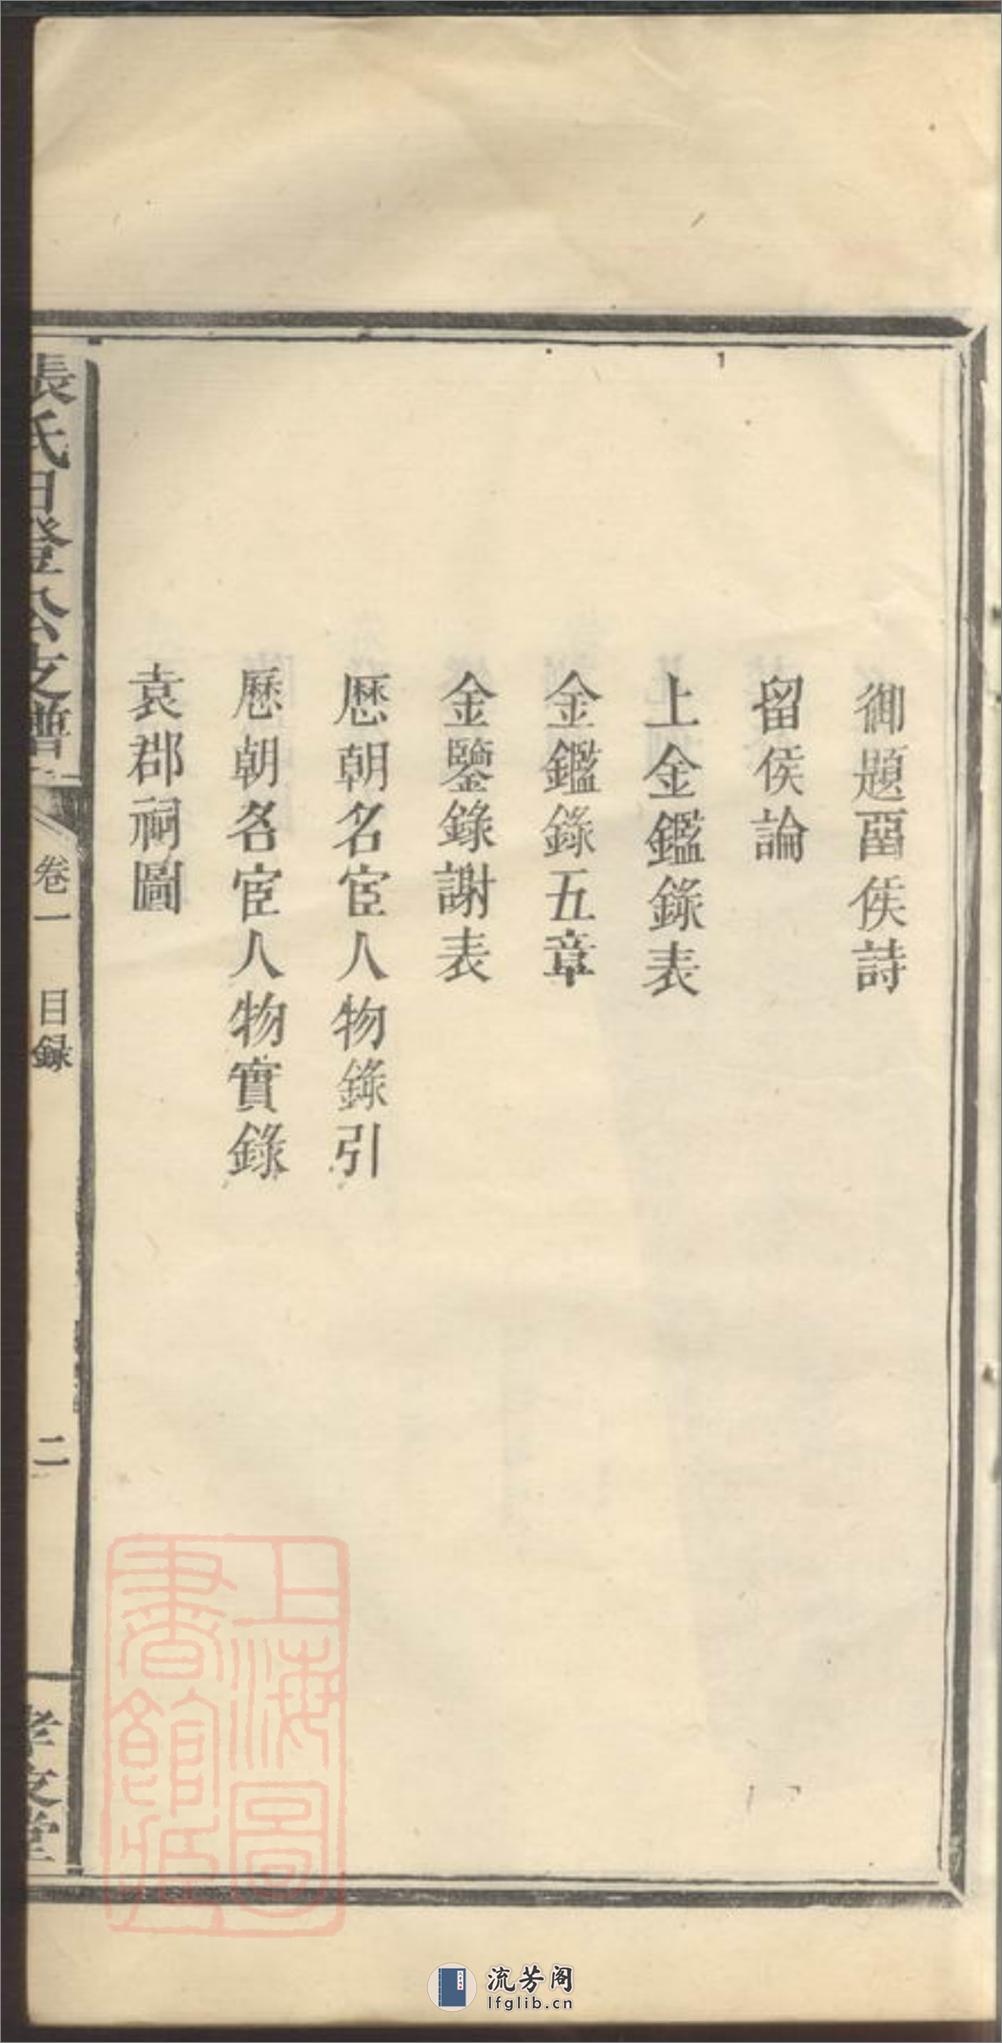 御題畱侯詩
留侯論
上金鑑錄表
金鑑錄五章
金鑒錄謝表
歷朝名宦人物錄引
歷朝各宦人物實錄
袁郡祠圖
張氏日登公支譜
卷一 目録
二
孝友堂
上海圖
書館藏
流芳阁
lfglib.cn